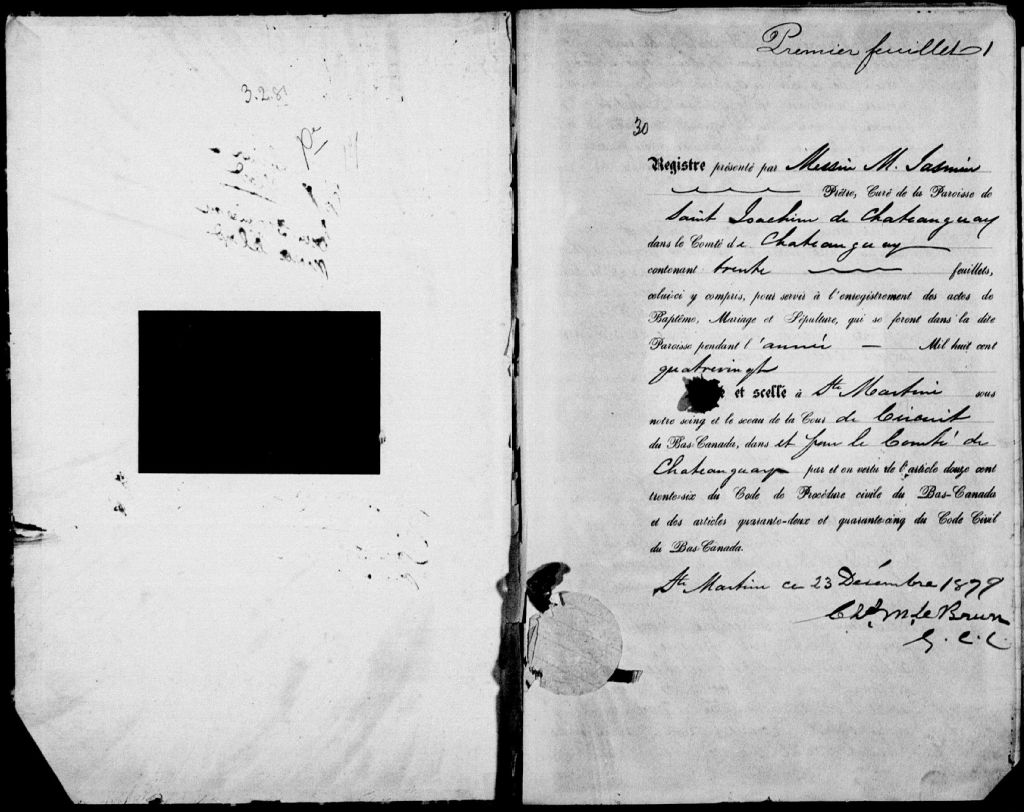 3.2.8
Premier feuillet 1
30
Registre présenté par Messire M. Jasmin
Prêtre, Curé de la Paroisse de
Saint Joachim de Chateauguay
dans le Comté de Chateauguay
contenant trente feuillets,
celui-ci y compris, pour servir à l'enregistrement des actes de
Baptême, Mariage et Sépulture, qui se feront dans la dite
Paroisse pendant l'année — Mil huit cent
quatrevingt
et scellé à Ste Martine sous
notre seing et le sceau de la Cour de Circuit
du Bas-Canada, dans et pour le Comté de
Chateauguay par et en vertu de l'article douze cent
trente-six du Code de Procédure civile du Bas-Canada
et des articles quarante-deux et quarante-cinq du Code Civil
du Bas-Canada.
Ste Martine ce 23 Décembre 1879
Chs. M. Le Brun
G. C. C.